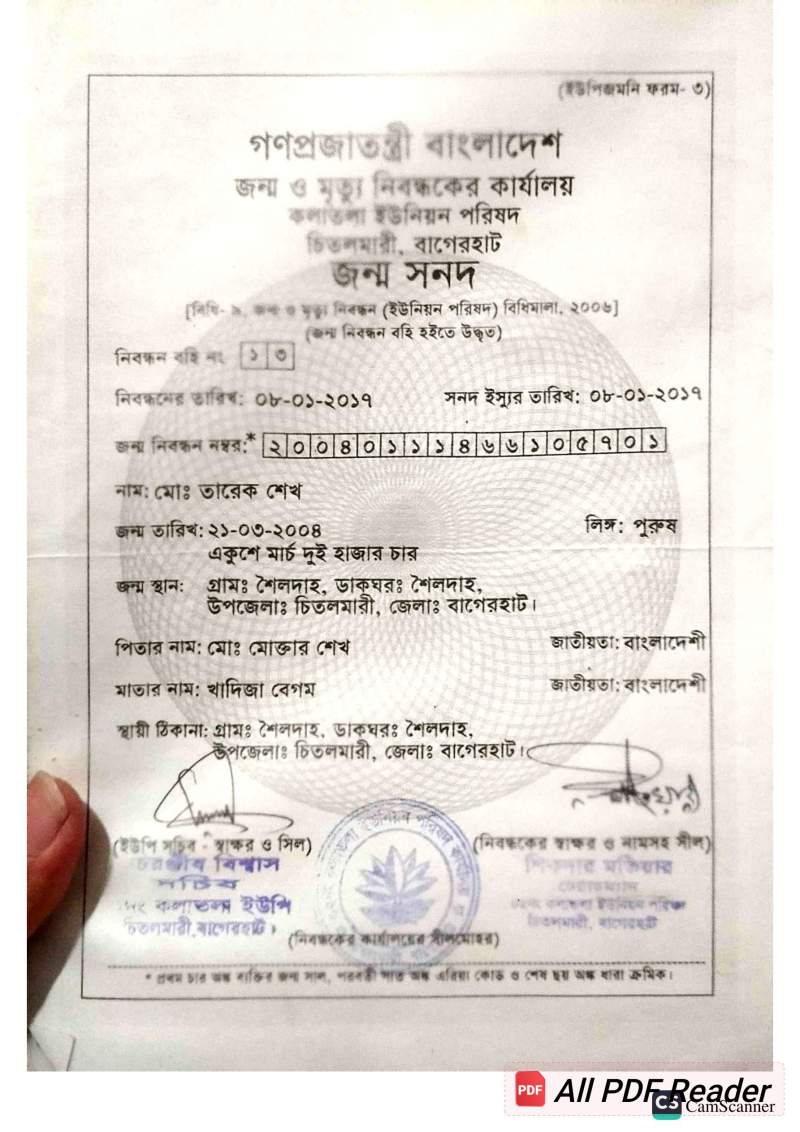 (ইউপিজমনি ফরম- ৩)
গণপ্রজাতন্ত্রী বাংলাদেশ
জন্ম ও মৃত্যু নিবন্ধকের কার্যালয়
কলাতলা ইউনিয়ন পরিষদ
চিতলমারী, বাগেরহাট
জন্ম সনদ
[বিধি- ৯, জন্ম ও মৃত্যু নিবন্ধন (ইউনিয়ন পরিষদ) বিধিমালা, ২০০৬]
(জন্ম নিবন্ধন বহি হইতে উদ্ধৃত)
নিবন্ধন বহি নং ১৩
নিবন্ধনের তারিখ: ০৮-০১-২০১৭ সনদ ইস্যুর তারিখ: ০৮-০১-২০১৭
জন্ম নিবন্ধন নম্বর:* ২০০৪০১১১৪৬৬১০৫৭০১
নাম: মোঃ তারেক শেখ
জন্ম তারিখ: ২১-০৩-২০০৪ লিঙ্গ: পুরুষ
একুশে মার্চ দুই হাজার চার
জন্ম স্থান: গ্রামঃ শৈলদাহ, ডাকঘরঃ শৈলদাহ,
উপজেলাঃ চিতলমারী, জেলাঃ বাগেরহাট।
পিতার নাম: মোঃ মোক্তার শেখ জাতীয়তা: বাংলাদেশী
মাতার নাম: খাদিজা বেগম জাতীয়তা: বাংলাদেশী
স্থায়ী ঠিকানা: গ্রামঃ শৈলদাহ, ডাকঘরঃ শৈলদাহ,
উপজেলাঃ চিতলমারী, জেলাঃ বাগেরহাট।
(ইউপি সচিব - স্বাক্ষর ও সিল) (নিবন্ধকের স্বাক্ষর ও নামসহ সীল)
বিশ্বাস
সচিব
কলাতলা ইউপি
চিতলমারী, বাগেরহাট। চিতলমারী, বাগেরহাট
(নিবন্ধকের কার্যালয়ের সীলমোহর)
* প্রথম চার অঙ্ক ব্যক্তির জন্ম সাল, পরবর্তী সাত অঙ্ক এরিয়া কোড ও শেষ ছয় অঙ্ক ধারা ক্রমিক।
PDF All PDF Reader
CS CamScanner